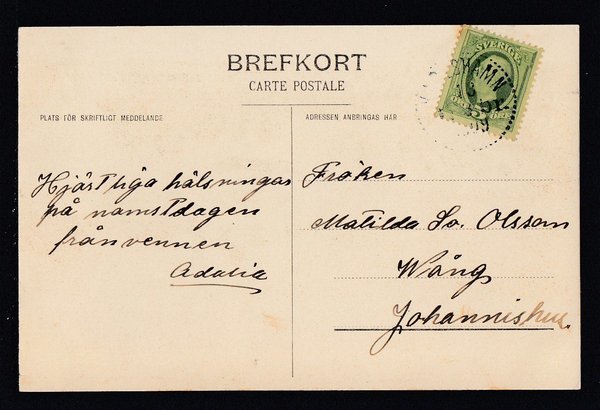 BREFKORT
CARTE POSTALE
PLATS FÖR SKRIFTLIGT MEDDELANDE
ADRESSEN ANBRINGAS HÄR
SVERIGE
5 ÖRE
Hjärtliga hälsningar
på namstdagen
från vennen
Adalia
Fröken
Matilda So. Olsson
Wång
Johannishus.